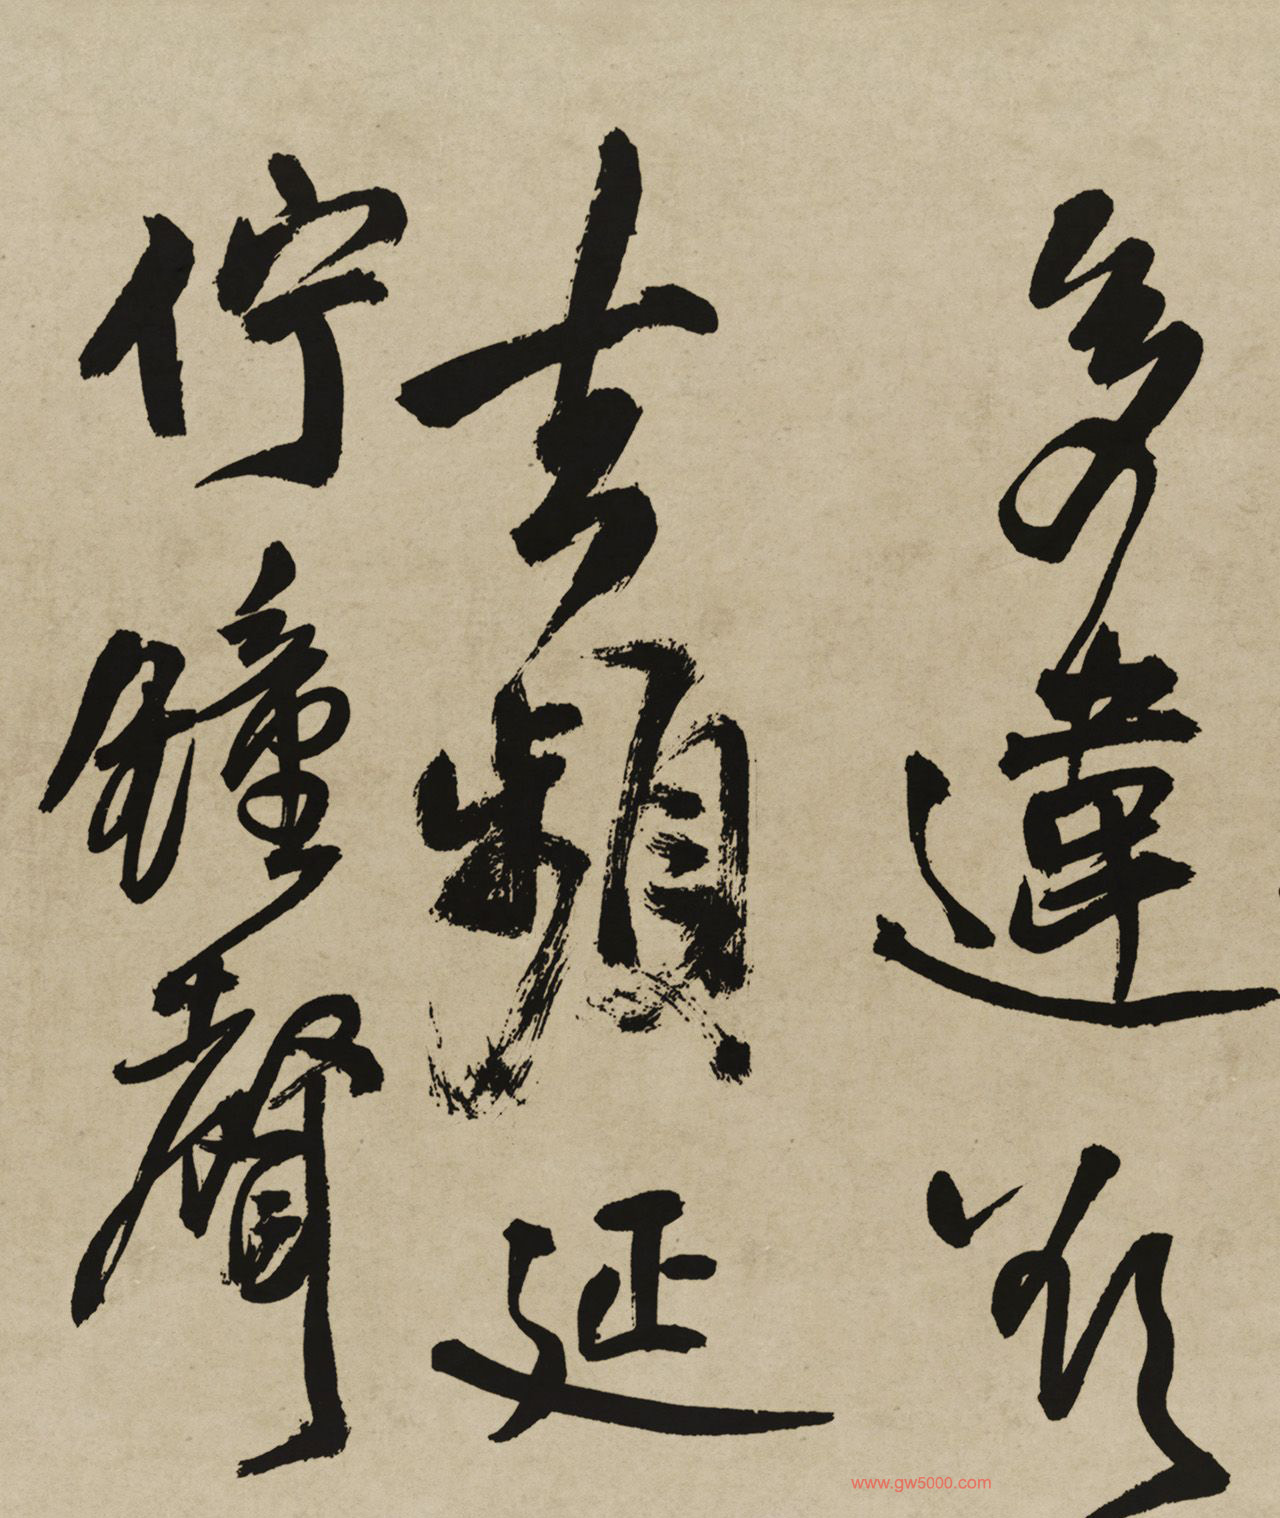 多違欲
去頻延
佇鐘聲
www.gw5000.com